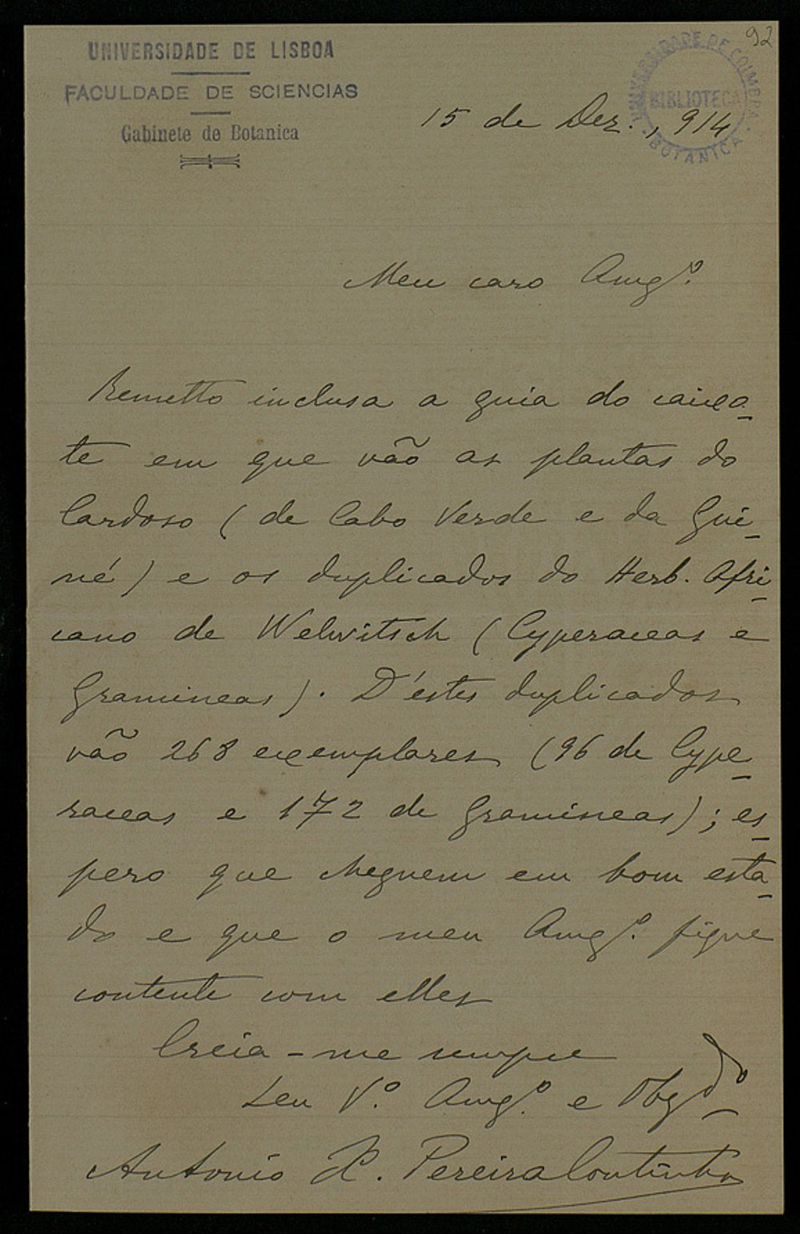 92
UNIVERSIDADE DE LISBOA
FACULDADE DE SCIENCIAS
Gabinete de Botanica
UNIVERSIDADE DE COIMBRA
BIBLIOTECA
BOTANICA
15 de Dez., 914
Meu caro Amgº.
Remetto inclusa a guia do caixo-
te em que vão as plantas do
Cardoso (de Cabo Verde e da Gui-
né) e os duplicados do Herb. Afri-
cano de Welwitsch (Cyperaceas e
Gramineas). D'estes duplicados
vão 268 exemplares (96 de Cype-
raceas e 172 de Gramineas); es-
pero que cheguem em bom esta-
do e que o meu Amgº. fique
contente com elles
Creia-me sempre
Seu Vº. Amgº. e Obgdº
Antonio X. Pereira Coutinho